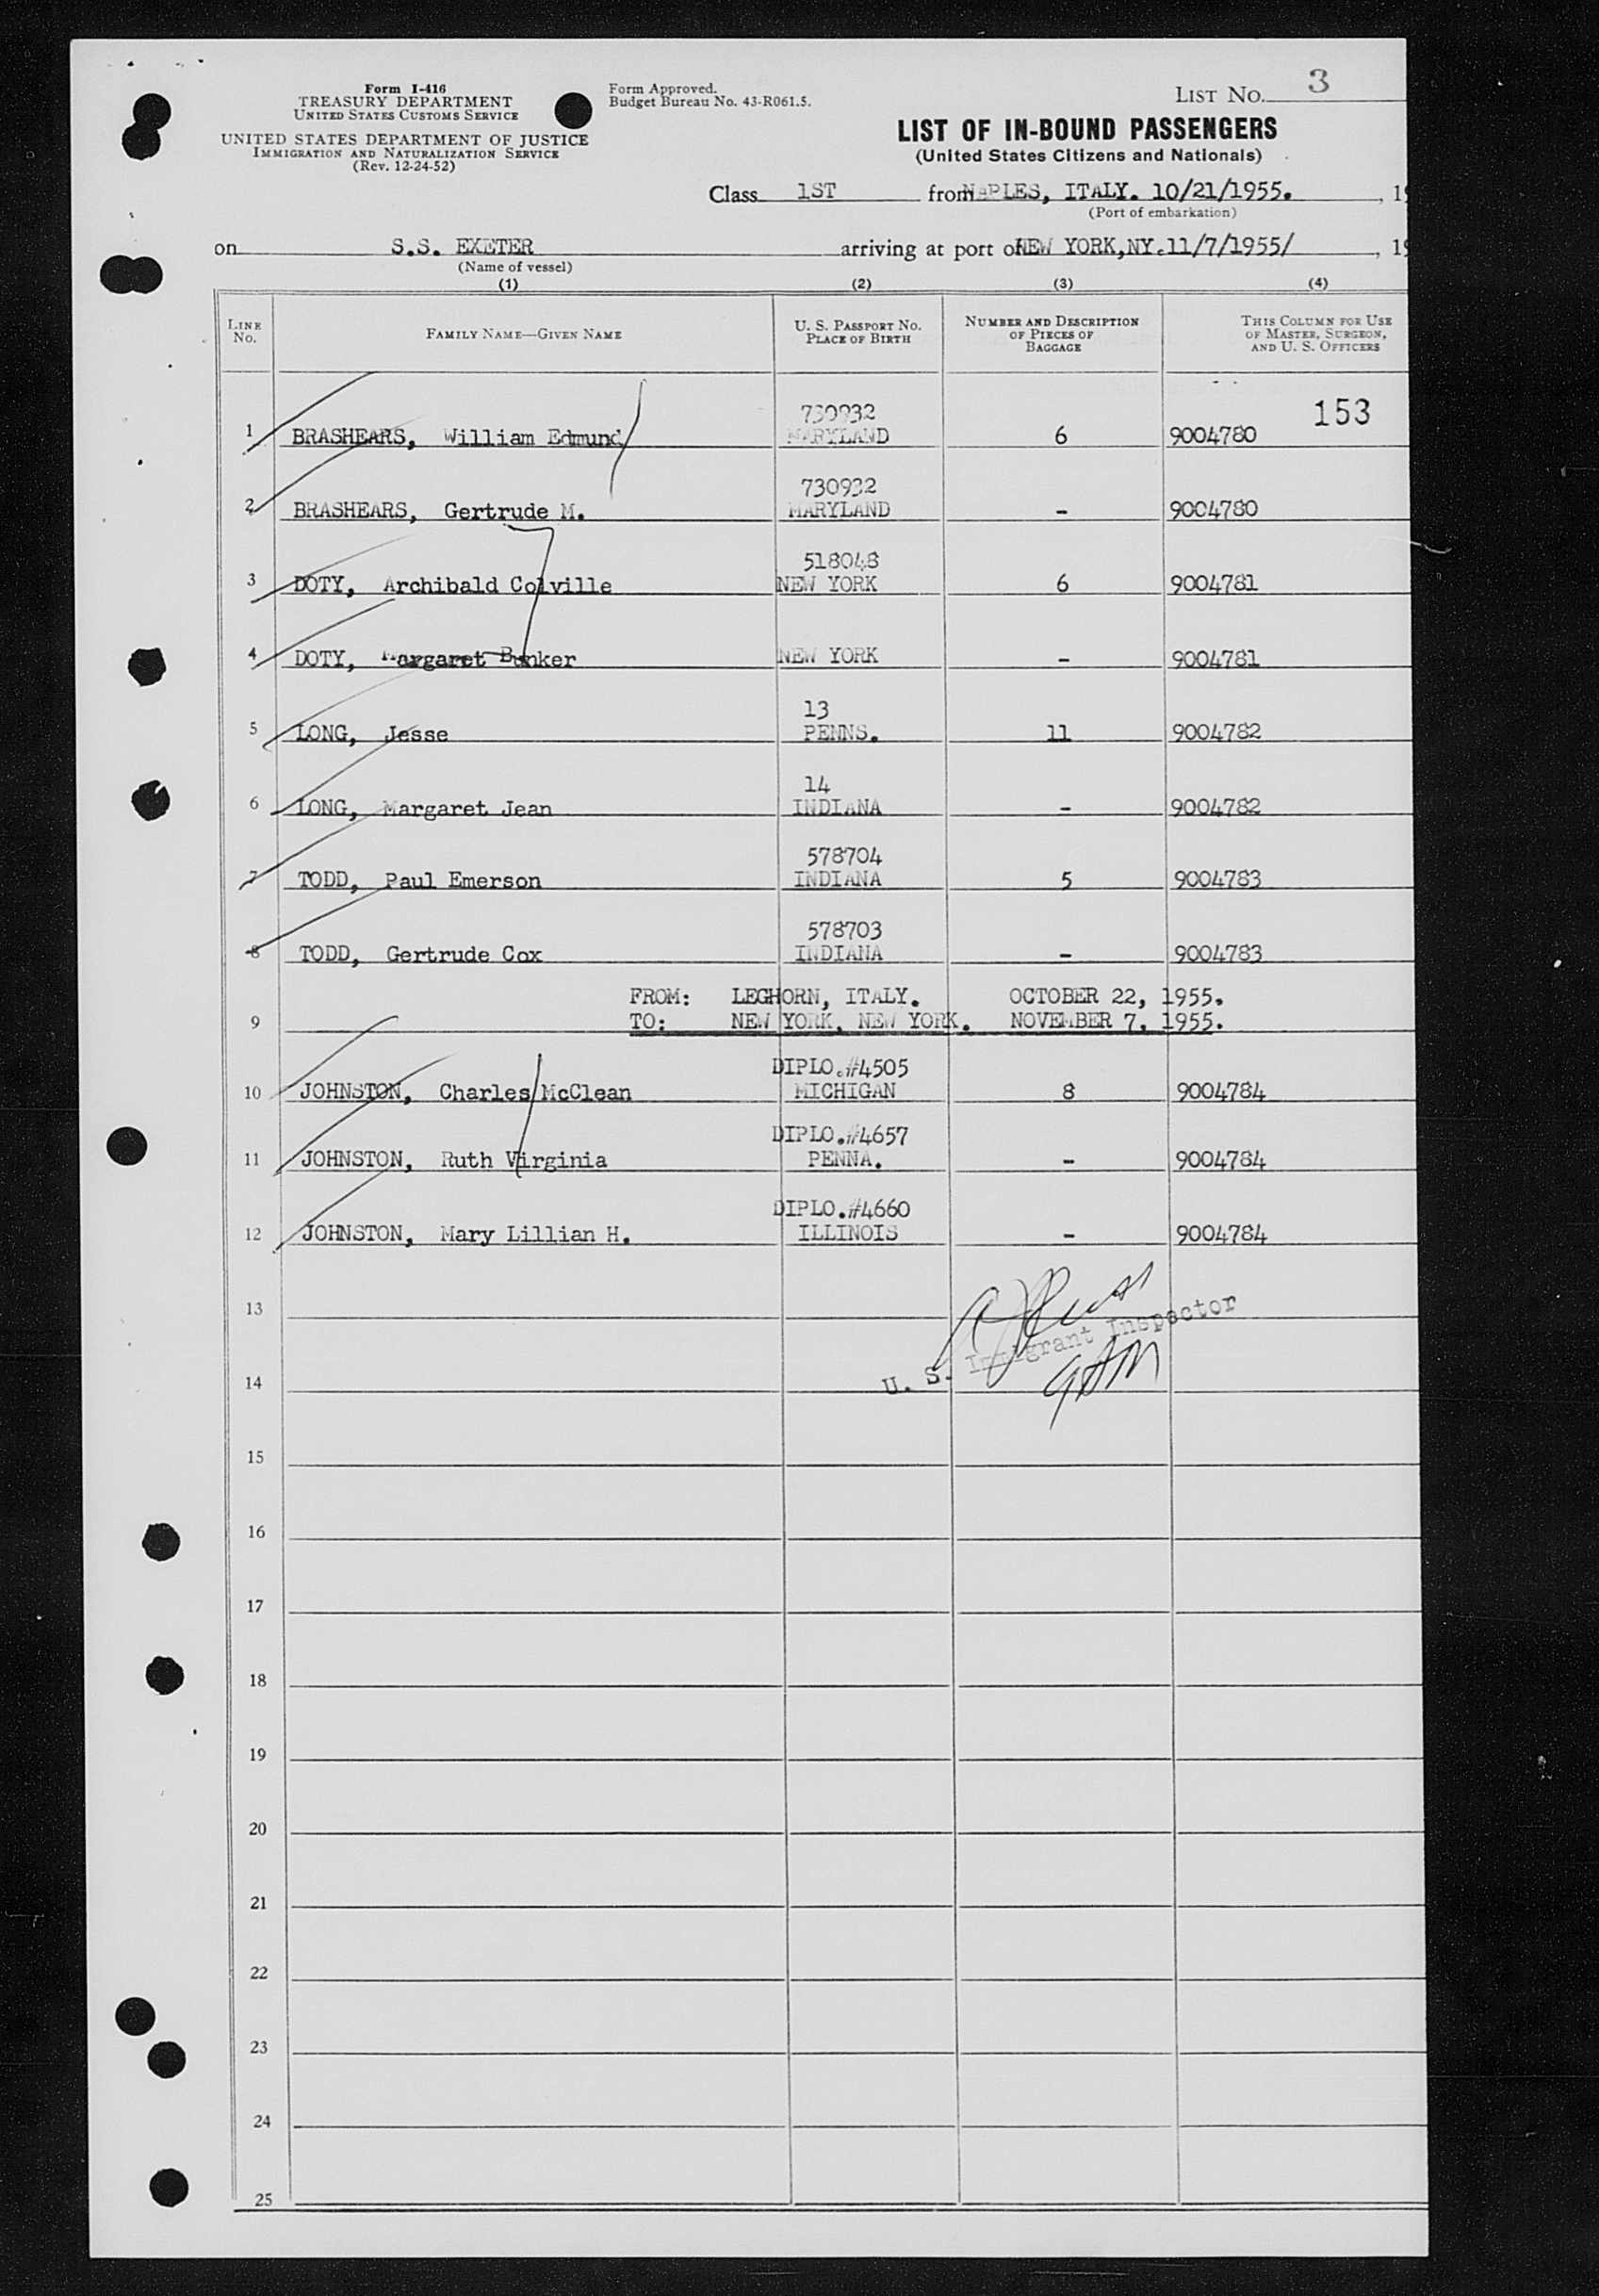 Form I-416
TREASURY DEPARTMENT
UNITED STATES CUSTOMS SERVICE
UNITED STATES DEPARTMENT OF JUSTICE
IMMIGRATION AND NATURALIZATION SERVICE
(Rev. 12-24-52)
Form Approved.
Budget Bureau No. 43-R061.5.
LIST No. 3
LIST OF IN-BOUND PASSENGERS
(United States Citizens and Nationals)
Class 1ST from NAPLES, ITALY. 10/21/1955. , 19
(Port of embarkation)
on S.S. EXETER arriving at port of NEW YORK,NY.11/7/1955/ , 19
(Name of vessel)
(1) (2) (3) (4)
LINE No. FAMILY NAME—GIVEN NAME U. S. PASSPORT NO. PLACE OF BIRTH NUMBER AND DESCRIPTION OF PIECES OF BAGGAGE THIS COLUMN FOR USE OF MASTER, SURGEON, AND U. S. OFFICERS
730932 153
1 BRASHEARS, William Edmund MARYLAND 6 9004780
730932
2 BRASHEARS, Gertrude M. MARYLAND - 9004780
518048
3 DOTY, Archibald Colville NEW YORK 6 9004781
4 DOTY, Margaret Bunker NEW YORK - 9004781
13
5 LONG, Jesse PENNS. 11 9004782
14
6 LONG, Margaret Jean INDIANA - 9004782
578704
7 TODD, Paul Emerson INDIANA 5 9004783
578703
8 TODD, Gertrude Cox INDIANA - 9004783
FROM: LEGHORN, ITALY. OCTOBER 22, 1955.
9 TO: NEW YORK, NEW YORK. NOVEMBER 7, 1955.
DIPLO.#4505
10 JOHNSTON, Charles McClean MICHIGAN 8 9004784
DIPLO.#4657
11 JOHNSTON, Ruth Virginia PENNA. - 9004784
DIPLO.#4660
12 JOHNSTON, Mary Lillian H. ILLINOIS - 9004784
13
U. S. Immigrant Inspector
14
15
16
17
18
19
20
21
22
23
24
25